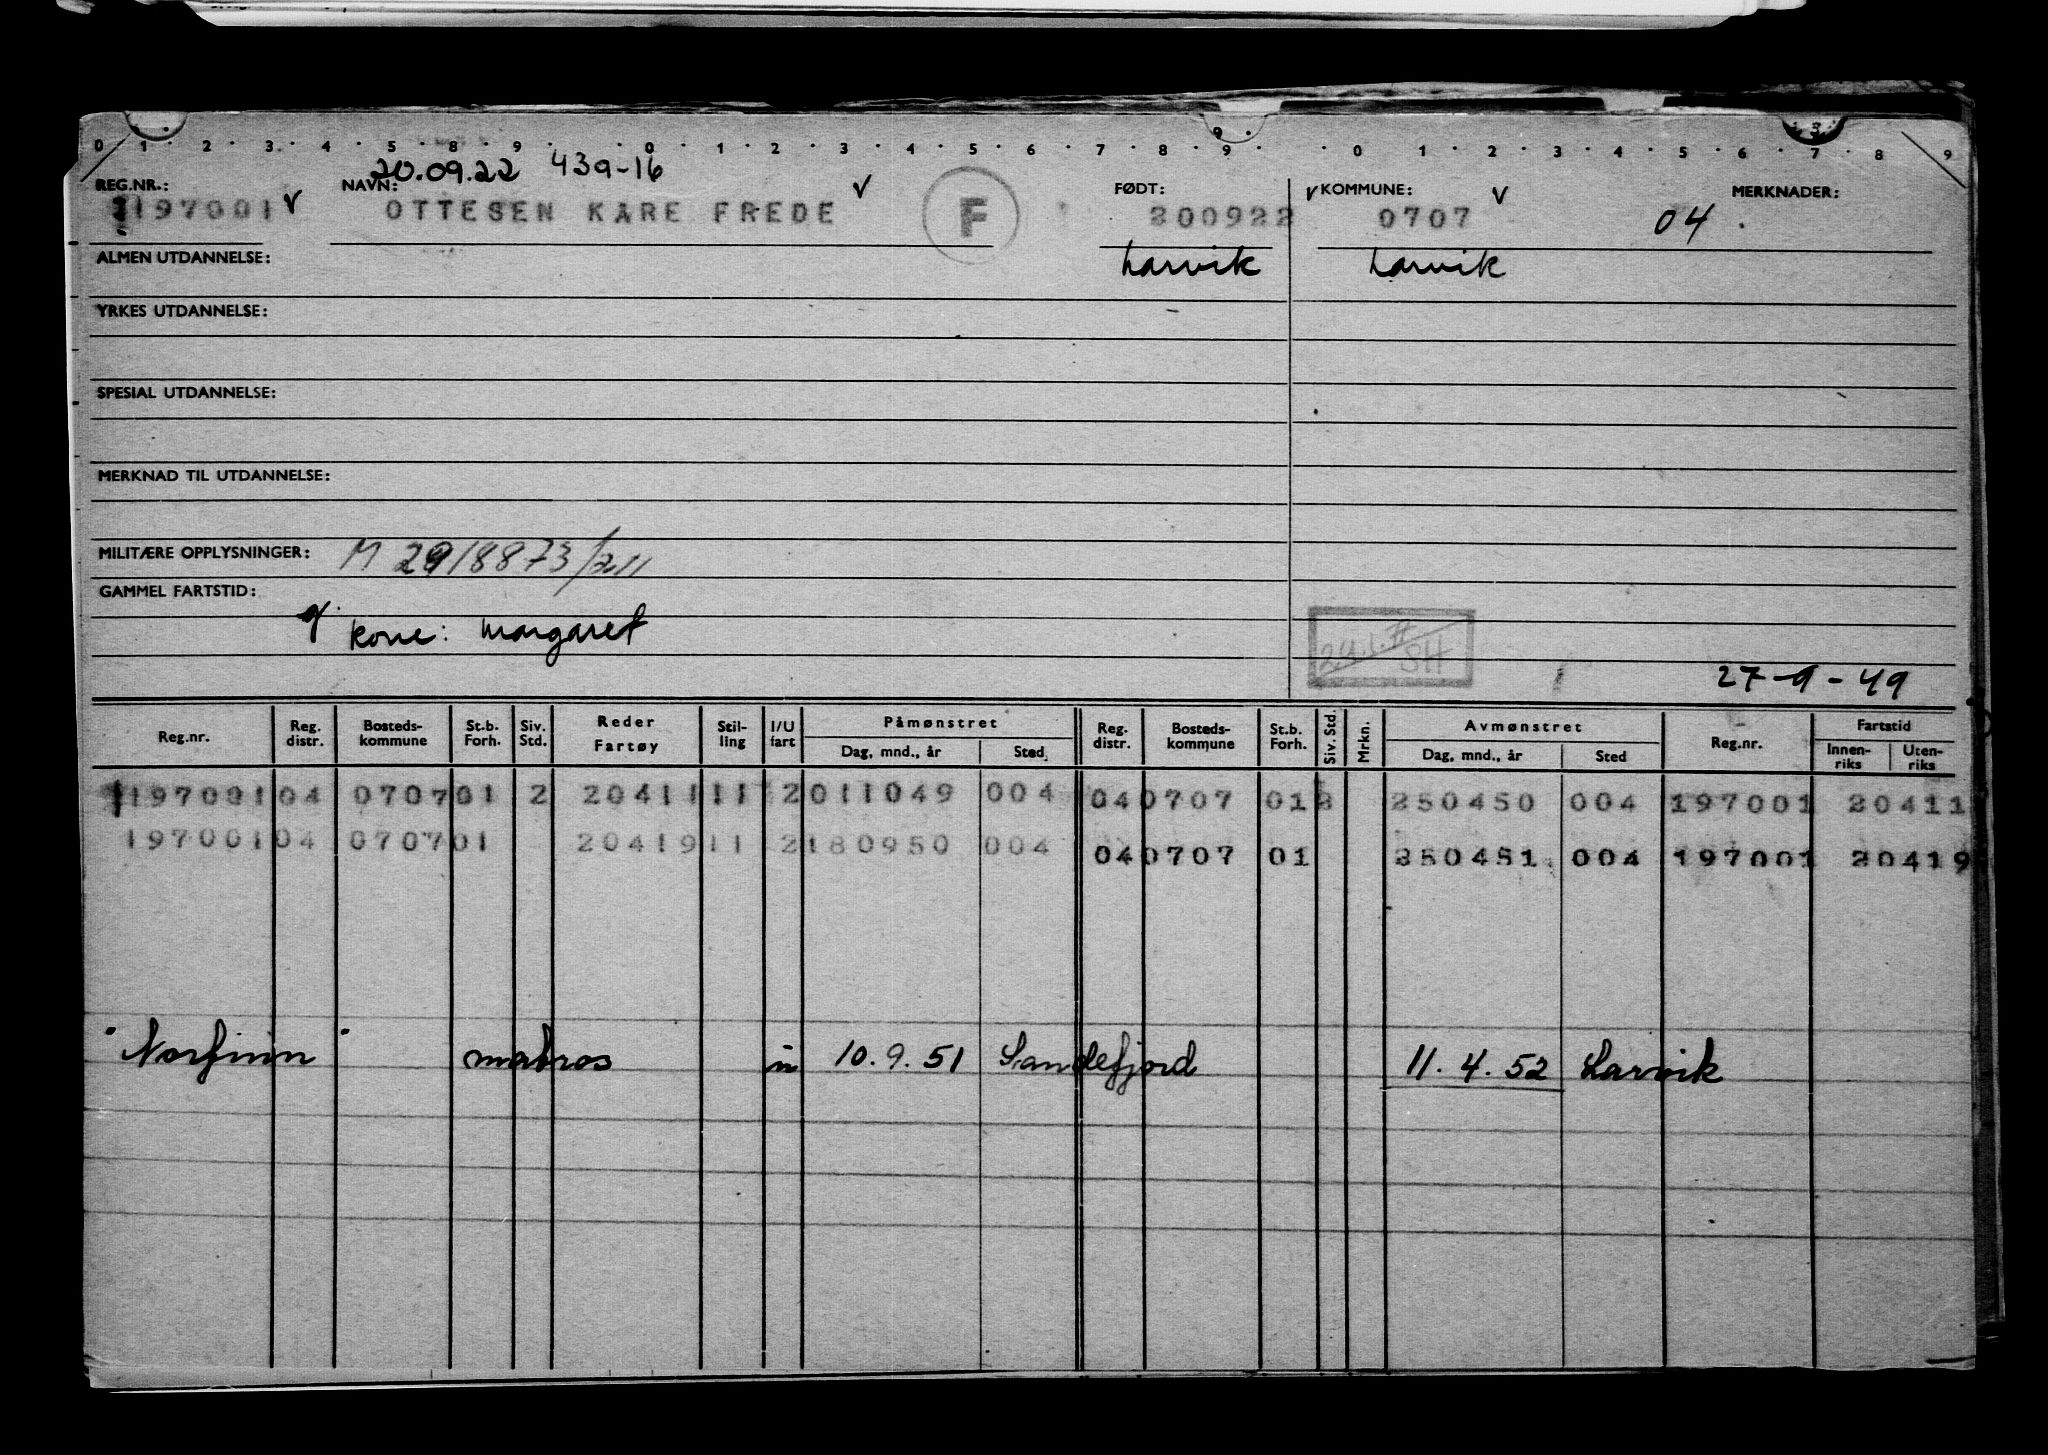 0 1 2 3 4 5 8 9 0 1 2 3 4 5 6 7 8 9 0 1 2 3 4 5 6 7 8 9
20.09.22 439-16
REG.NR.: NAVN: FØDT: KOMMUNE: MERKNADER:
197001 OTTESEN KARE FREDE F 200922 0707 04
ALMEN UTDANNELSE: Larvik Larvik
YRKES UTDANNELSE:
SPESIAL UTDANNELSE:
MERKNAD TIL UTDANNELSE:
MILITÆRE OPPLYSNINGER: M 2918873/211
GAMMEL FARTSTID:
g. kone: Margaret
SH
27-9-49
Reg.nr. Reg. distr. Bosteds-kommune St.b. Forh. Siv. Std. Reder Fartøy Stil-ling I/U fart Påmønstret Dag, mnd., år Sted. Reg. distr. Bosteds-kommune St.b. Forh. Siv. Std. Mrkn. Avmønstret Dag, mnd., år Sted Reg.nr. Fartstid Innen-riks Uten-riks
197001 04 0707 01 2 20411 11 2 011049 004 04 0707 01 2 250450 004 197001 20411
197001 04 0707 01 20419 11 2 180950 004 04 0707 01 250451 004 197001 20419
"Norfinn" matros u 10.9.51 Sandefjord 11.4.52 Larvik